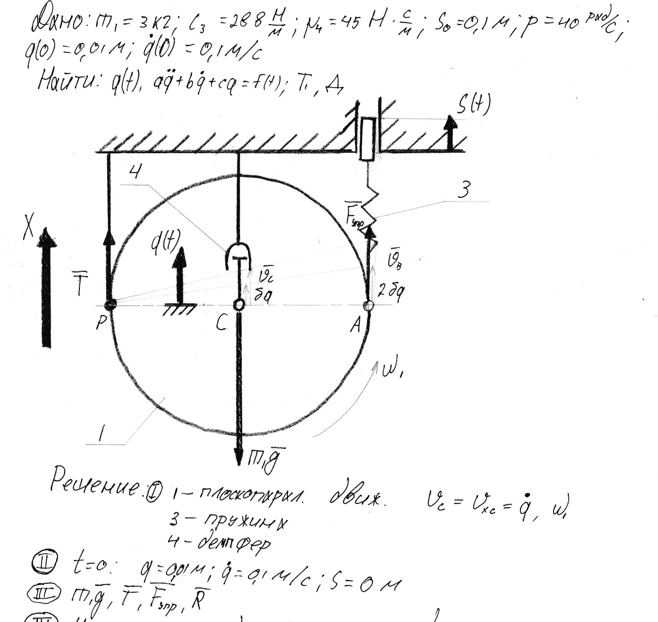 Дано: m₁ = 3 кг; c₃ = 288 Н/м; μ₄ = 45 Н·с/м; S₀ = 0,1 м; p = 40 рад/с;
q(0) = 0,01 м; q̇(0) = 0,1 м/с
Найти: q(t), aq̈ + bq̇ + cq = f(t); T₁, Д
S(t)
4
3
F̅упр
X
q(t)
T̅
v̅c
v̅в
δq
2δq
P
C
A
ω₁
1
m₁g̅
Решение. I 1 – плоскопарал. движ. vc = vxc = q̇, ω₁
3 – пружина
4 – демпфер
II t=0: q=0,01м; q̇=0,1м/с; S=0м
III m₁g̅, T̅, F̅упр, R̅